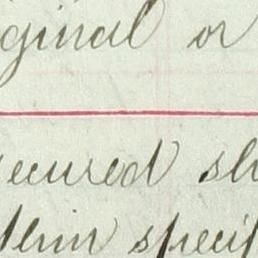 ginal or
ecured sh
thin specif